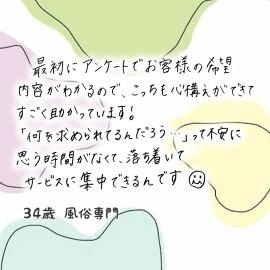 最初にアンケートでお客様の希望
内容がわかるので、こっちも心構えができて
すごく助かっています!
「何を求められてるんだろう…」って不安に
思う時間がなくて、落ち着いて
サービスに集中できるんです☺
34歳 風俗専門